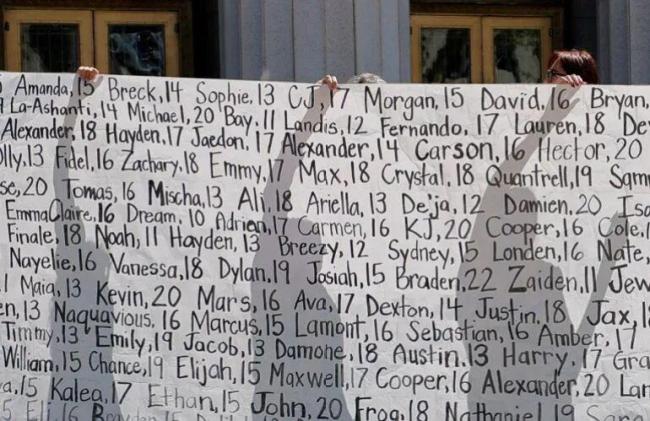 Amanda, 15 Breck, 14 Sophie, 13 CJ, 17 Morgan, 15 David, 16 Bryan,
La-Ashanti, 14 Michael, 20 Bay, 11 Landis, 12 Fernando, 17 Lauren, 18 De
Alexander, 18 Hayden, 17 Jaedon, 17 Alexander, 14 Carson, 16 Hector, 20
olly, 13 Fidel, 16 Zachary, 18 Emmy, 17 Max, 18 Crystal, 18 Quantrell, 19 Sam
se, 20 Tomas, 16 Mischa, 13 Ali, 18 Ariella, 13 Deja, 12 Damien, 20 Isa
EmmaClaire, 16 Dream, 10 Adrien, 17 Carmen, 16 KJ, 20 Cooper, 16 Cole, 1
Finale, 18 Noah, 11 Hayden, 13 Breezy, 12 Sydney, 15 Londen, 16 Nate,
Nayelie, 16 Vanessa, 18 Dylan, 19 Josiah, 15 Braden, 22 Zaiden, 11 Jew
Maia, 13 Kevin, 20 Mars, 16 Ava, 17 Dexton, 14 Justin, 18 Jax, 1
en, 13 Naquavious, 16 Marcus, 15 Lamont, 16 Sebastian, 16 Amber, 17
Timmy, 13 Emily, 19 Jacob, 13 Damone, 18 Austin, 13 Harry, 17 Gra
William, 15 Chance, 19 Elijah, 15 Maxwell, 17 Cooper, 16 Alexander, 20 Lan
a, 15 Kalea, 17 Ethan, 15 John, 20 Frog, 18 Nathaniel, 19 Sara
5 Eli, 16